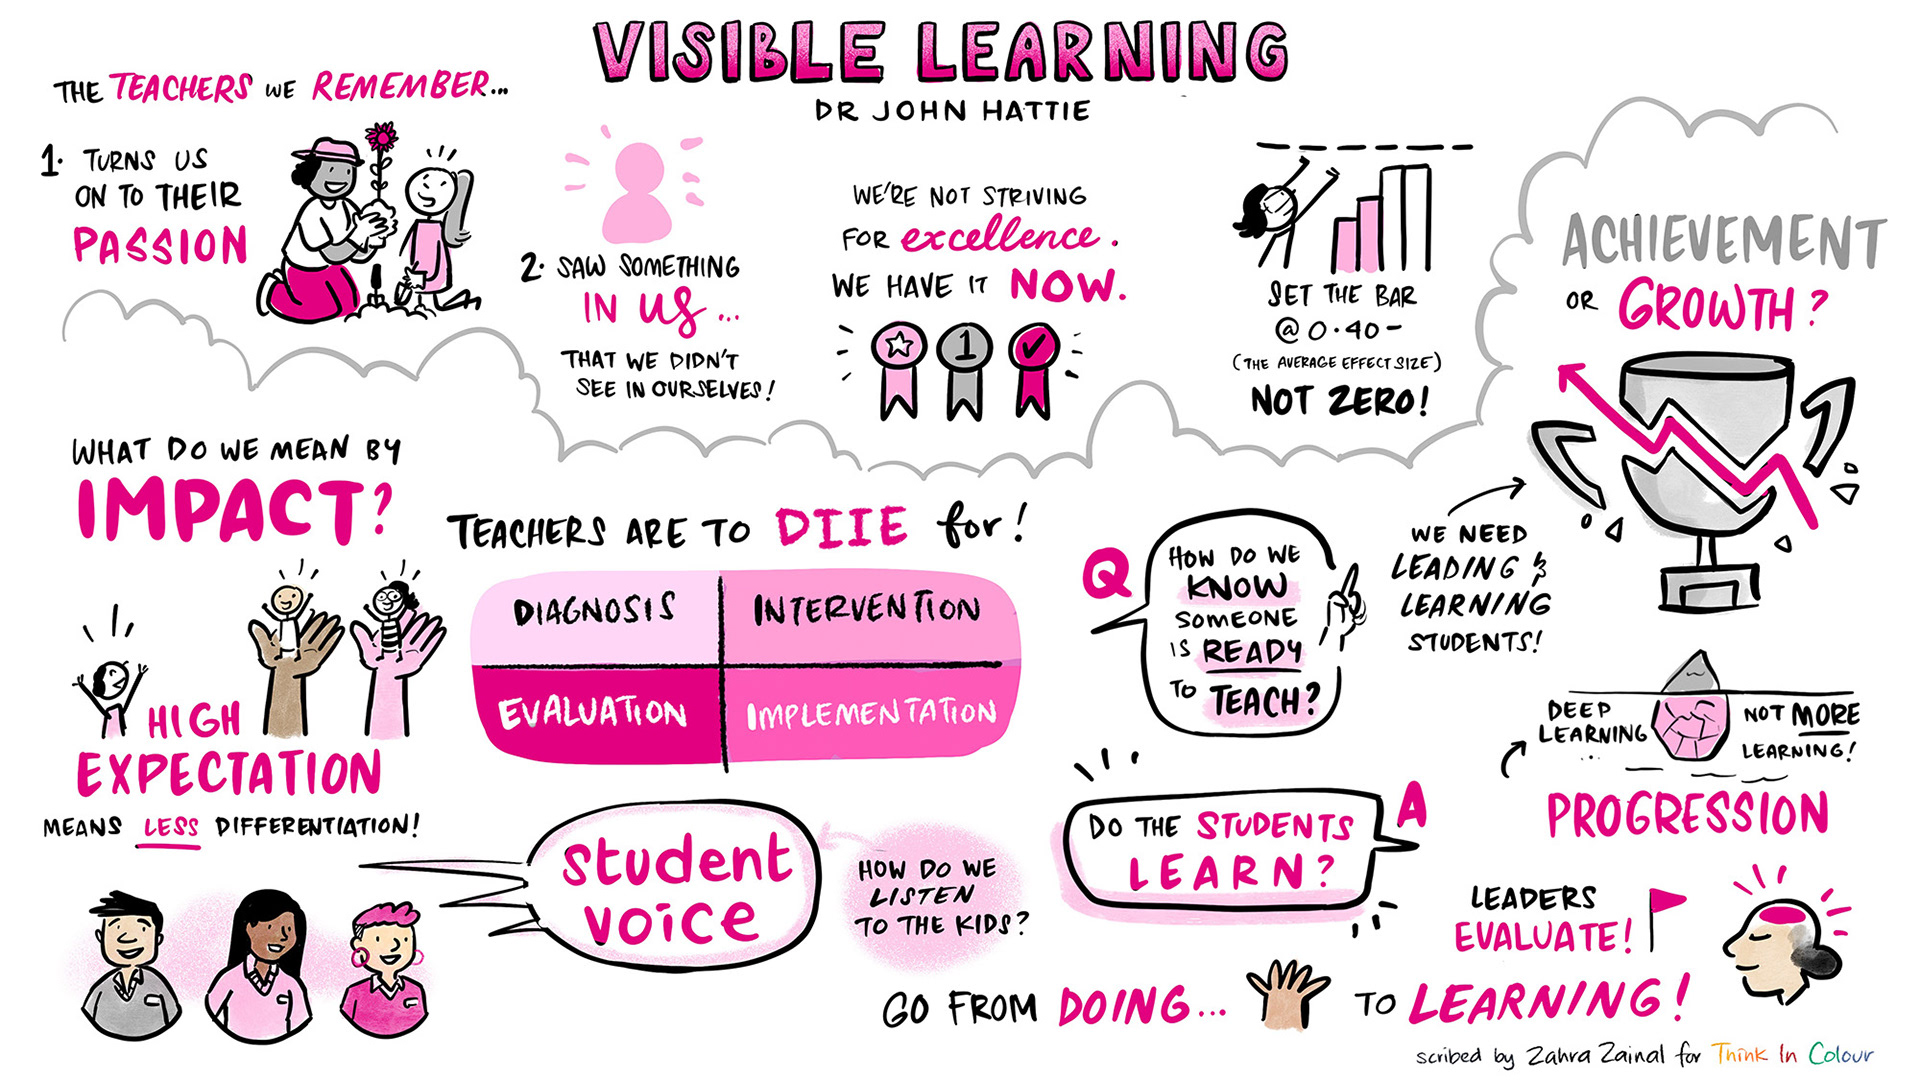 VISIBLE LEARNING
DR JOHN HATTIE
THE TEACHERS WE REMEMBER...
1. TURNS US
ON TO THEIR
PASSION
2. SAW SOMETHING
IN US...
THAT WE DIDN'T
SEE IN OURSELVES!
WE'RE NOT STRIVING
FOR excellence.
WE HAVE IT NOW.
1
SET THE BAR
@ 0.40-
(THE AVERAGE EFFECT SIZE)
NOT ZERO!
ACHIEVEMENT
OR GROWTH?
WE NEED
LEADING &
LEARNING
STUDENTS!
WHAT DO WE MEAN BY
IMPACT?
HIGH
EXPECTATION
MEANS LESS DIFFERENTIATION!
TEACHERS ARE TO DIIE for!
DIAGNOSIS
INTERVENTION
EVALUATION
IMPLEMENTATION
Q
HOW DO WE
KNOW
SOMEONE
IS READY
TO TEACH?
A
DO THE STUDENTS
LEARN?
DEEP
LEARNING
...
NOT MORE
LEARNING!
PROGRESSION
student
voice
HOW DO WE
LISTEN
TO THE KIDS?
LEADERS
EVALUATE!
GO FROM DOING... TO LEARNING!
scribed by Zahra Zainal for Think In Colour